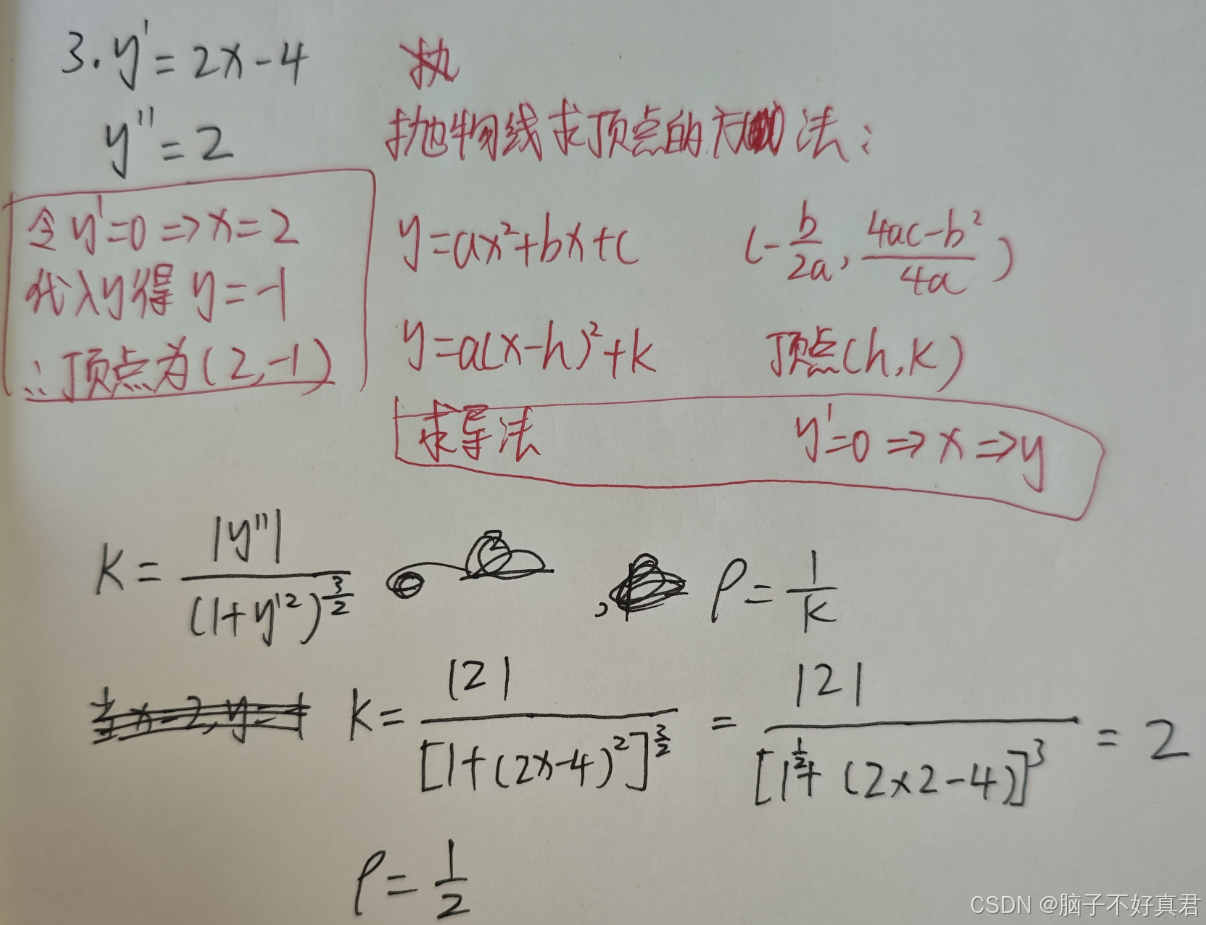 3. y' = 2x-4
y'' = 2
令y'=0 ⇒ x=2
代入y得 y=-1
∴顶点为(2,-1)
抛物线求顶点的方法：
y=ax²+bx+c (-b/2a, (4ac-b²)/4a)
y=a(x-h)²+k 顶点(h,k)
求导法 y'=0 ⇒ x ⇒ y
K = |y''| / (1+y'²)^(3/2) , ρ = 1/K
K = |2| / [1+(2x-4)²]^(3/2) = |2| / [1^(1/2)+(2×2-4)]³ = 2
ρ = 1/2
CSDN @脑子不好真君